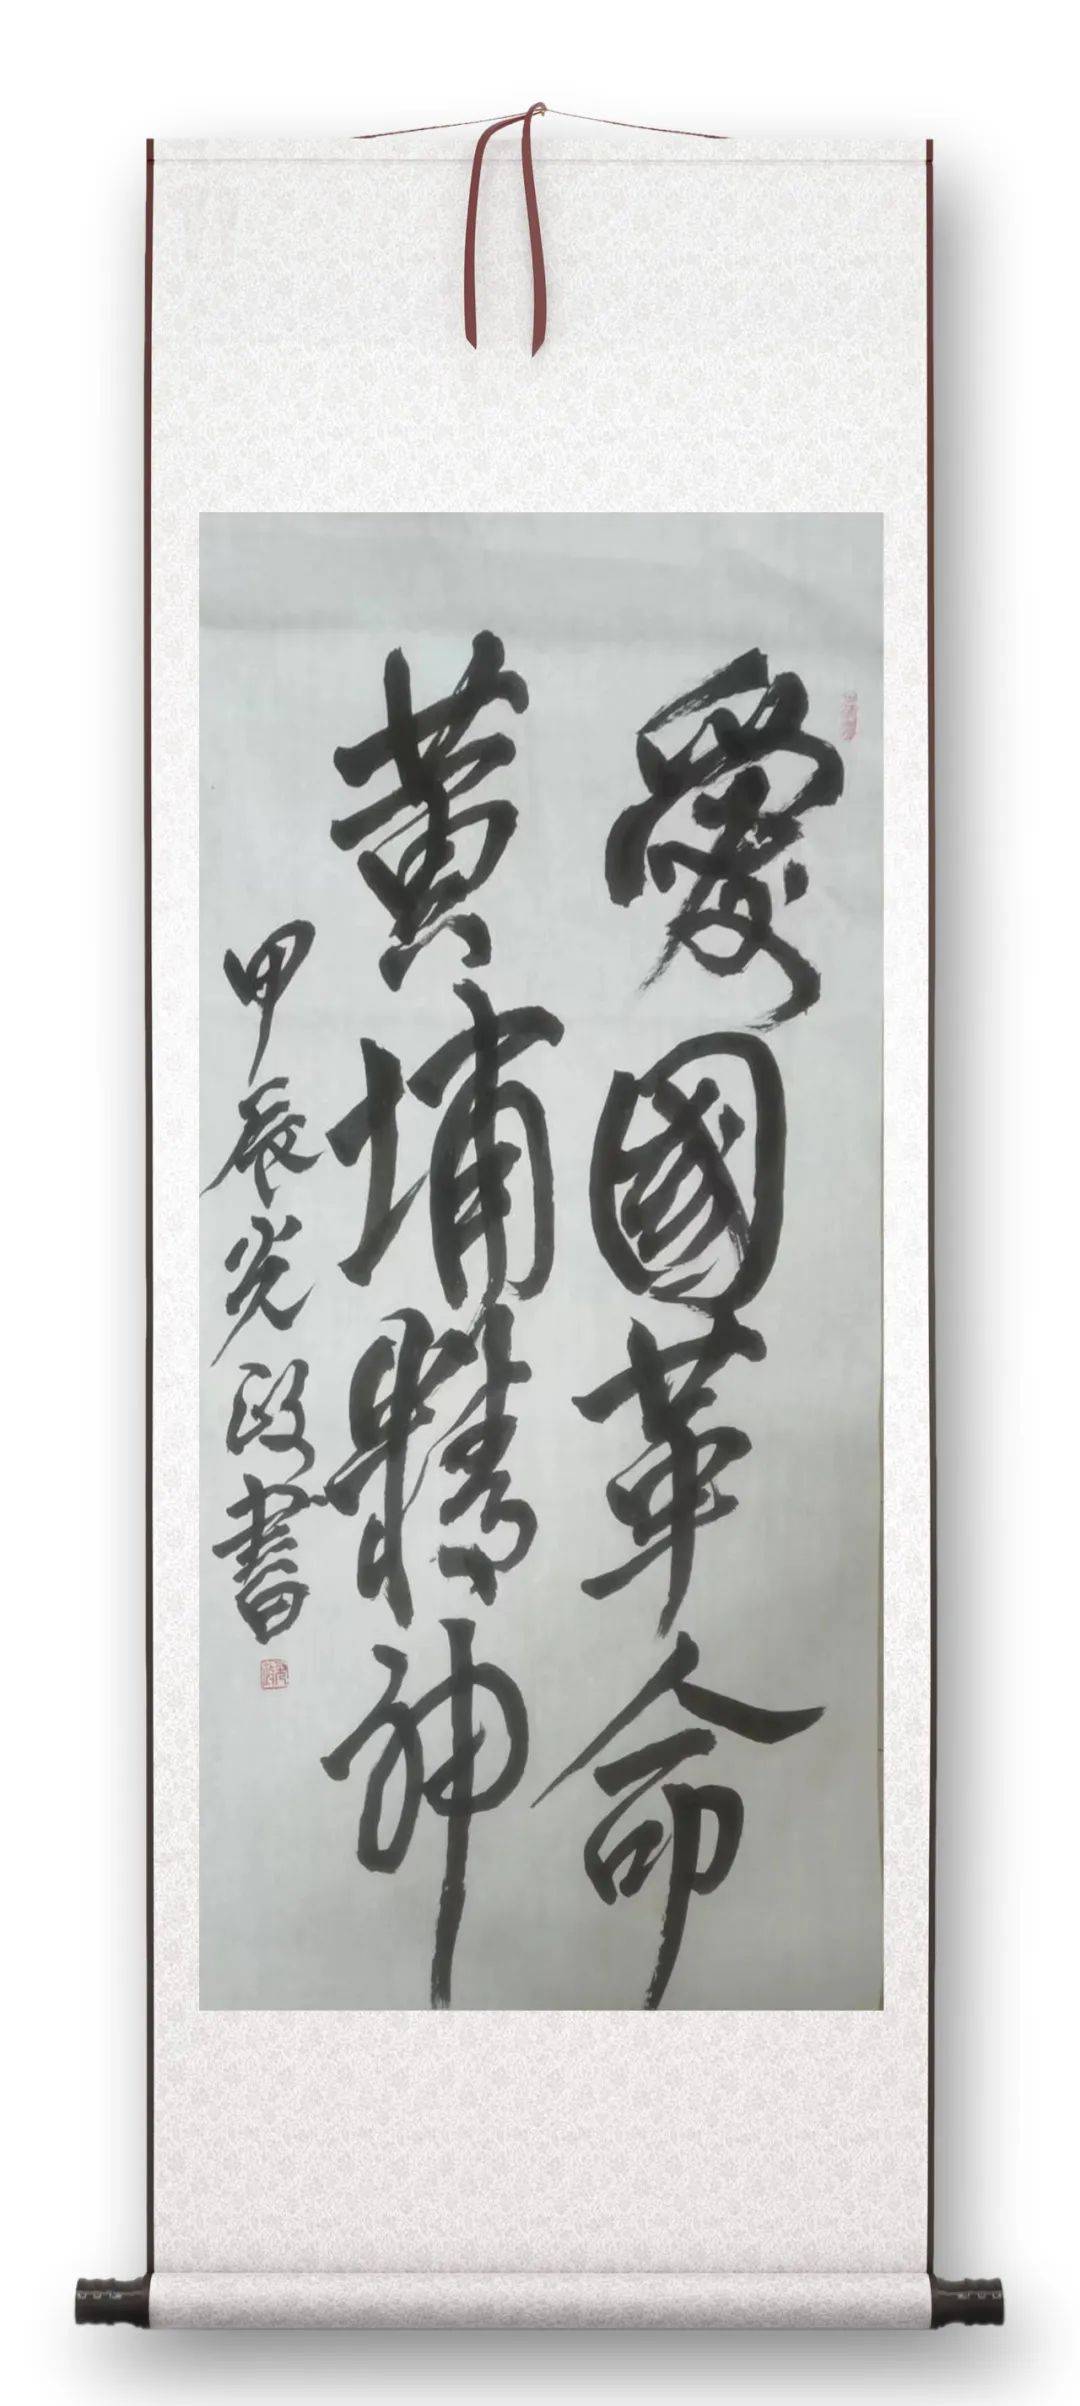 愛國革命
黄埔精神
甲辰光政書